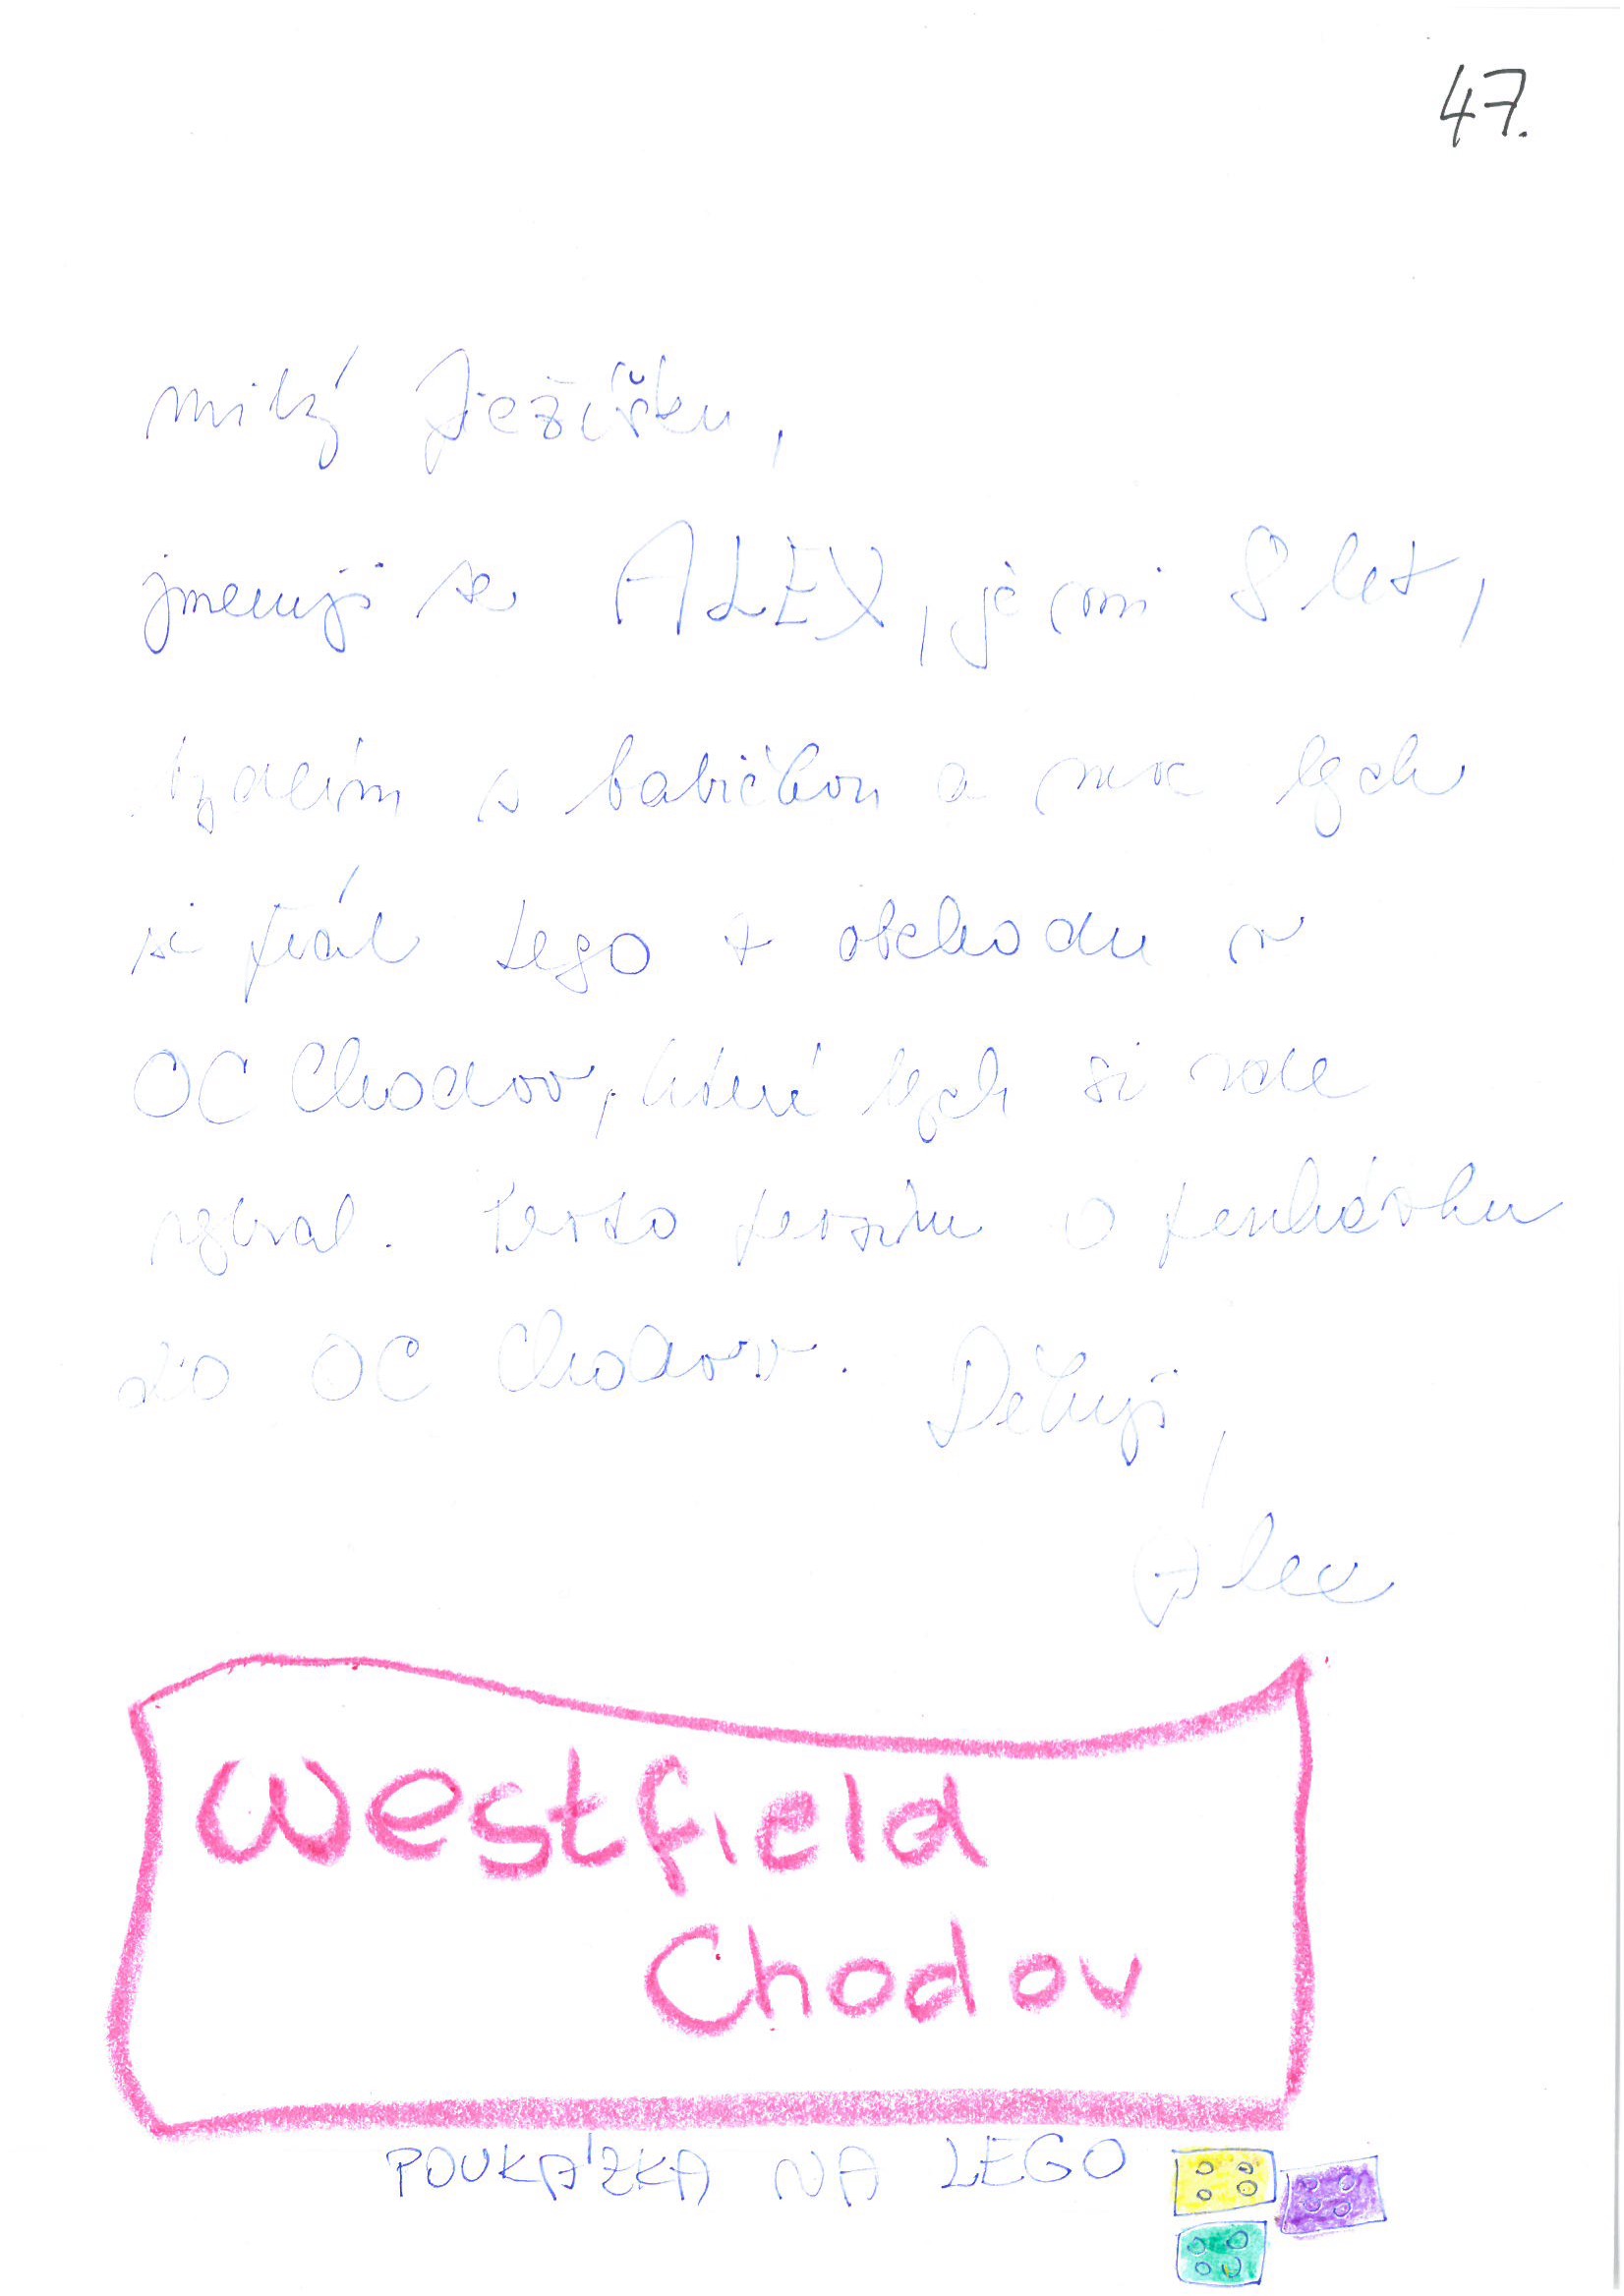 47.
milý Ježíšku,
jmenuji se ALEX, je mi 8 let,
bydlím s babičkou a moc bych
si přál Lego z obchodu v
OC Chodov, které bych si zde
vybral. Proto prosím o poukázku
do OC Chodov. Děkuji,
Alex
Westfield
Chodov
POUKÁZKA NA LEGO